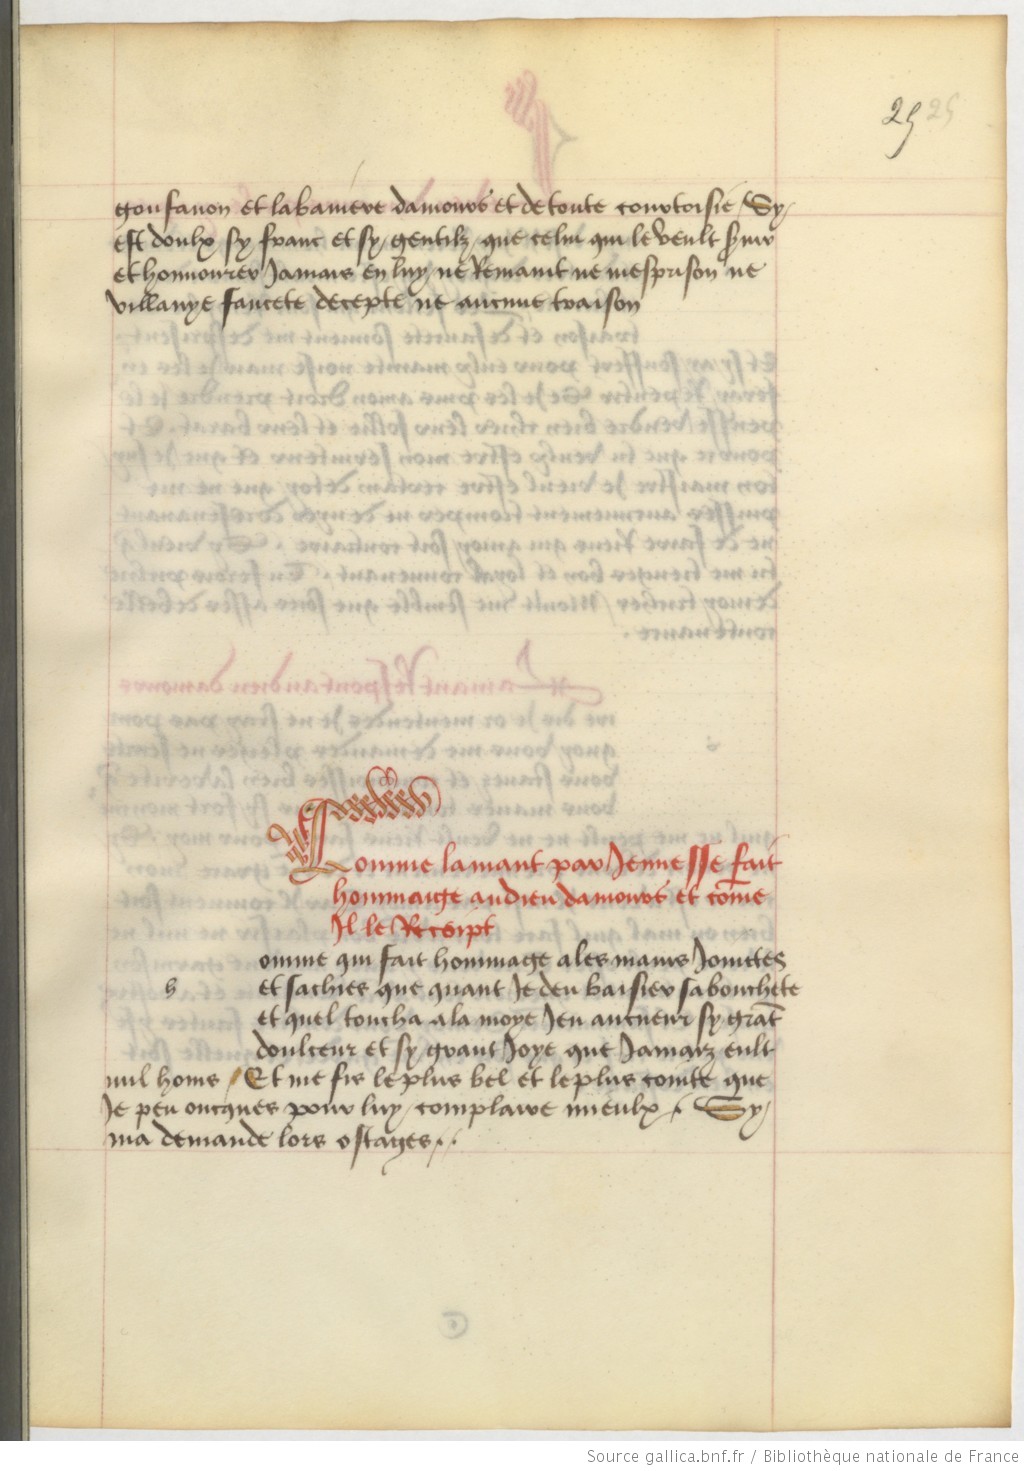 25 25
gonfanon et la baniere damours et de toute courtoisie / Sy /
est doulx sy franc et sy gentilz que celui qui le veult servir
et honnourer Jamais en luy ne Remaint ne mesprison ne
villanye faucete decepte ne aucune traison
Comme lamant par Jennesse fait
hommaige au dieu damours et come
Il le Recoipt
omme qui fait hommage a les mains Jointes
h et sachies que quant Je deu baisier sa bouchete
et quel toucha a la moye Jen au cueur sy grāt
doulceur et sy grant Joye que Jamaiz eult
nul homs / Et me fis le plus bel et le plus cointe que
Je peu oncques pour luy complaire mieulx . Sy /
ma demande lors ostages . .
Source gallica.bnf.fr / Bibliothèque nationale de France